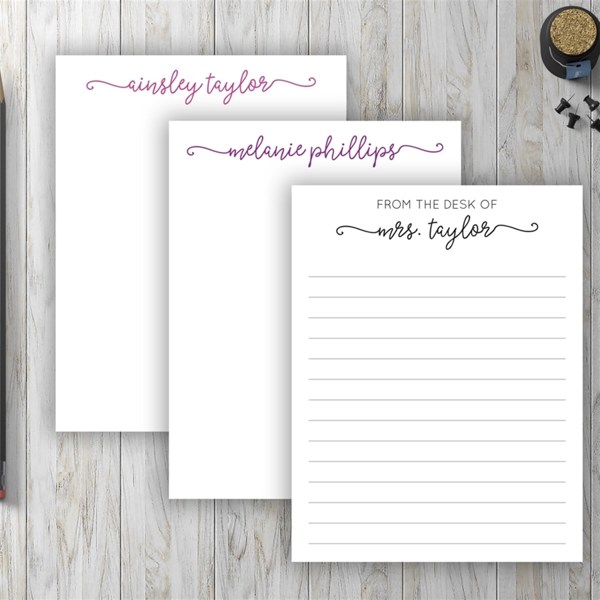 ainsley taylor
melanie phillips
FROM THE DESK OF
mrs. taylor